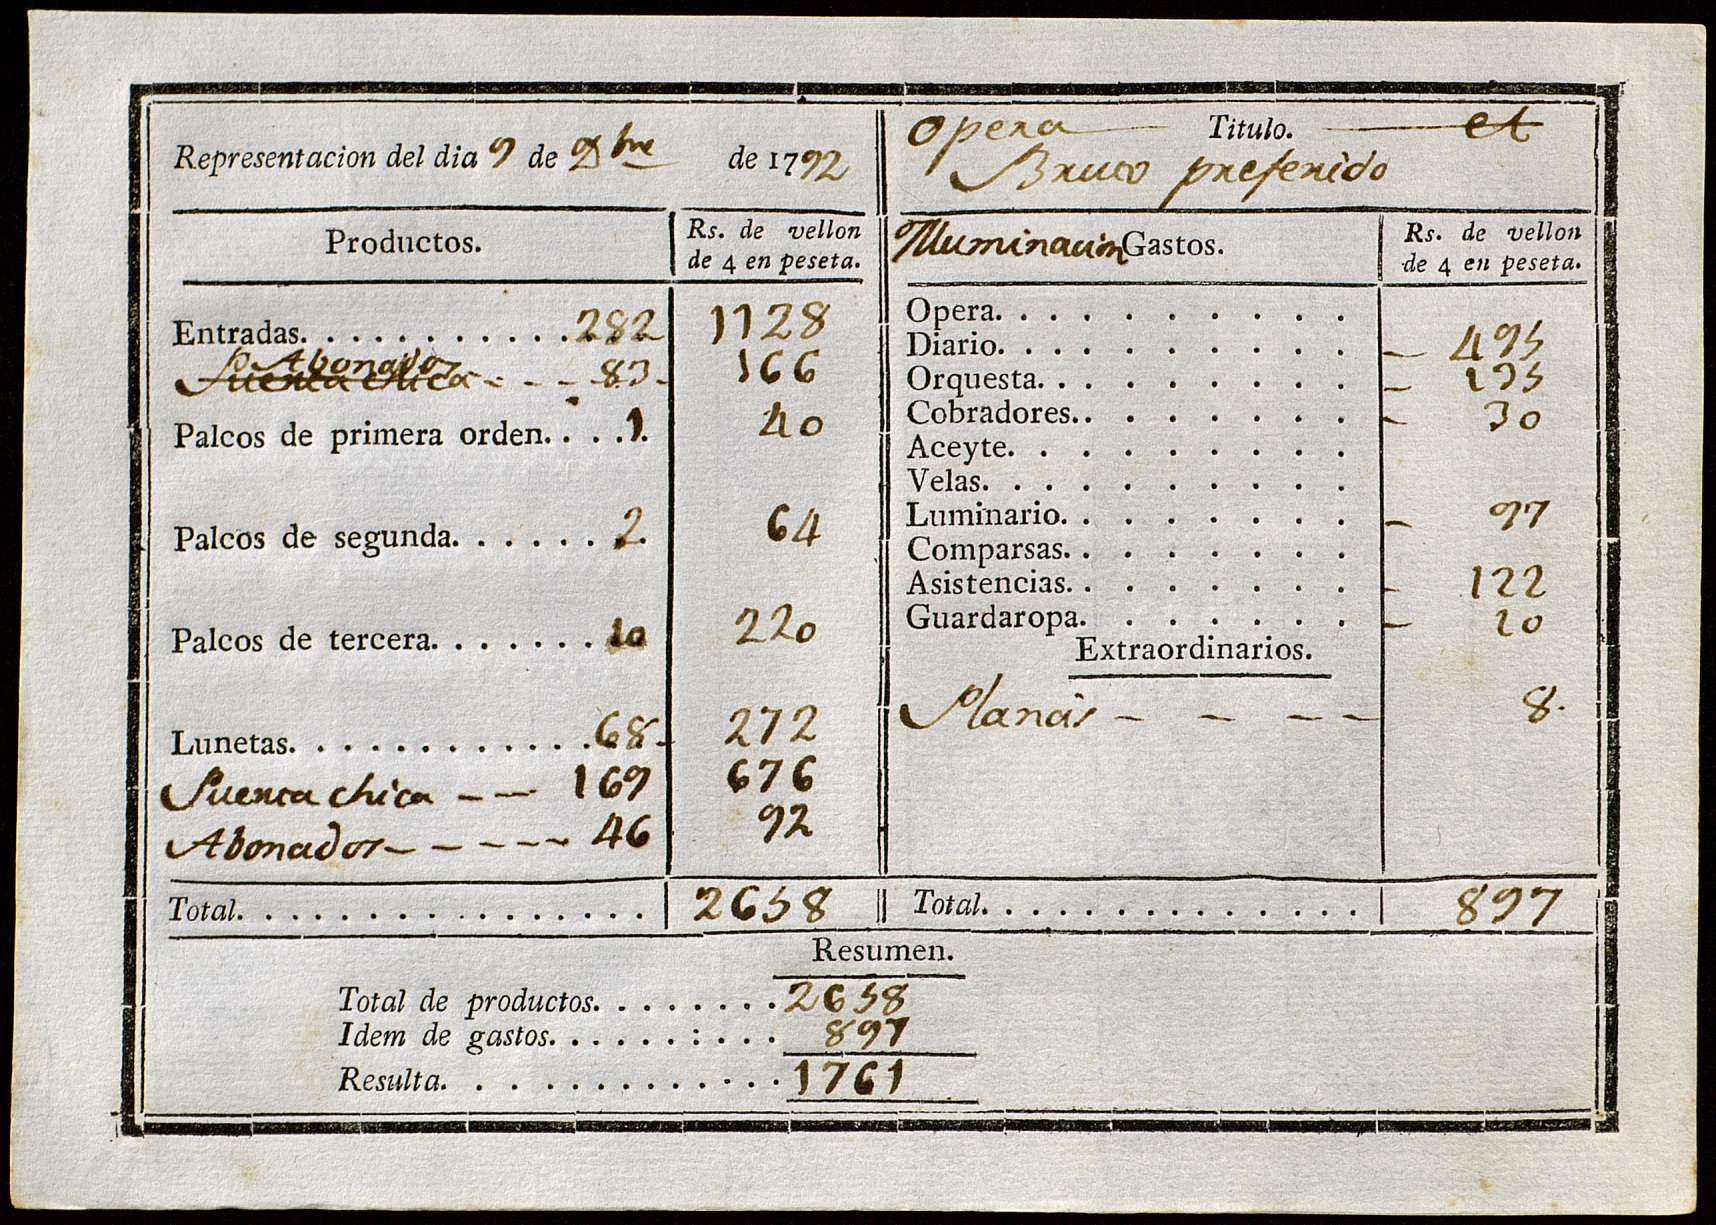 Representacion del dia 9 de de 1792
Opera Titulo. el
Bruto preferido
Productos.
Rs. de vellon
de 4 en peseta.
Illuminacion Gastos.
Rs. de vellon
de 4 en peseta.
Entradas. . . . . . . . . . . 282 1128
Abonados
Puerta chica - - - 83 - 166
Palcos de primera orden. . . . 1. 40
Palcos de segunda. . . . . . 2. 64
Palcos de tercera. . . . . . . 10 220
Lunetas. . . . . . . . . . . . 68 - 272
Puerta chica - - 169 676
Abonados - - - - - 46 92
Total. . . . . . . . . . . . . . . . 2658
Opera. . . . . . . . .
Diario. . . . . . . . . - 495
Orquesta. . . . . . . . - 135
Cobradores. . . . . . . - 30
Aceyte. . . . . . . . .
Velas. . . . . . . . . .
Luminario. . . . . . . . - 97
Comparsas. . . . . . . .
Asistencias. . . . . . . - 122
Guardaropa. . . . . . . - 10
Extraordinarios.
Planas - - - - 8.
Total. . . . . . . . . . . . . . 897
Resumen.
Total de productos. . . . . . . . 2658
Idem de gastos. . . . . . : . . . 897
Resulta. . . . . . . . . . . . . 1761